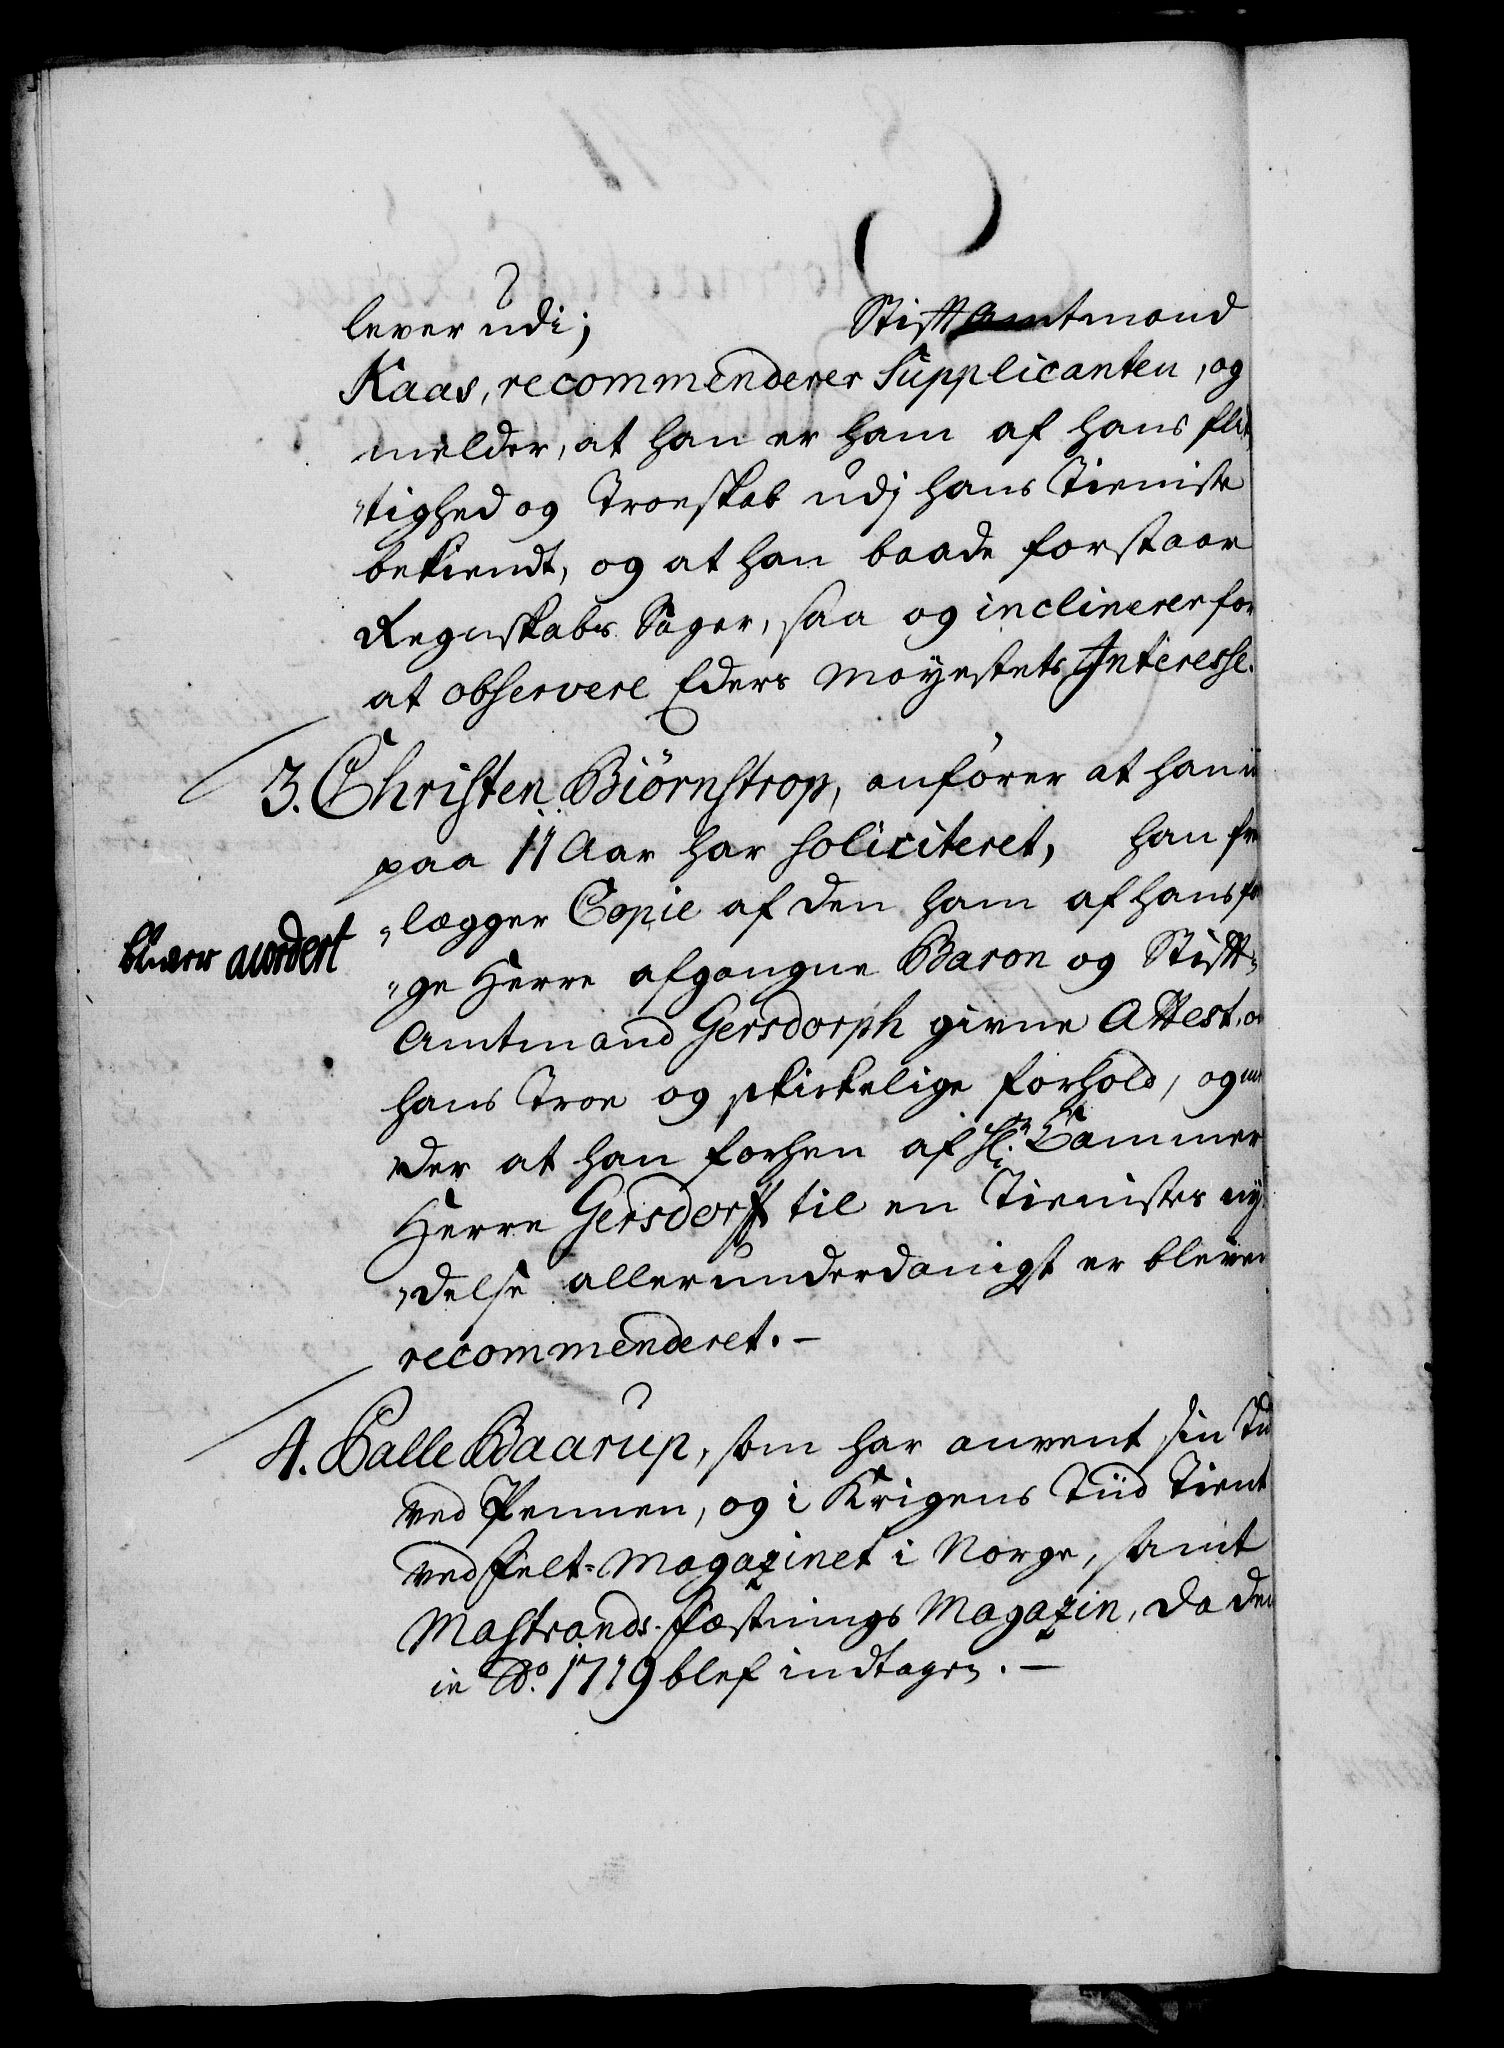 lever udi; Stifft Amtmand
Kaas, recommenderer Supplicanten, og
melder, at han er ham af hans flit,
„tighed og Troeskab udj hans Tieniste
bekiendt, og at han baade forstaar
Regnskabs Sager, saa og inclinerer for
at observere Eders Mayestets Interesse.
3. Christen Biörnstrop, anfører at han i
paa 11 Aar har soliciteret, han fre
„lægger Copie af den ham af hans for
bliver aurdert
„ge Herre afgangne Baron og Stifft-
Amtmand Gersdorph givne Attest, om
hans Troe og skickelige forhold, og mel
„der at han forhen af Hr. Cammer
Herre Gersdorff til en Tienistes ny,
„delse allerunderdanigst er bleven
recommenderet. –
4. Palle Baarup, som har anvent sin Tiid
ved Pennen, og i Krigens Tiid Tient
ved felt-Magazinet i Norge, samt
Mastrands fæstnings Magazin, da den
in Ao. 1719 blef indtagen. –